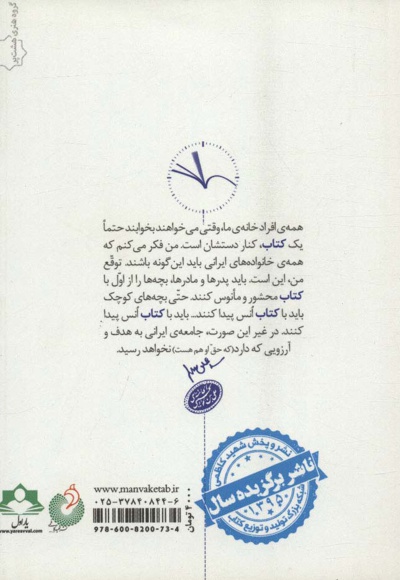 گروه هنری هشت‌بر
همه‌ی افراد خانه‌ی ما، وقتی می‌خواهند بخوابند حتماً
یک کتاب، کنار دستشان است. من فکر می‌کنم که
همه‌ی خانواده‌های ایرانی باید این‌گونه باشند. توقّع
من، این است. باید پدرها و مادرها، بچه‌ها را از اوّل با
کتاب محشور و مأنوس کنند. حتّی بچه‌های کوچک
باید با کتاب اُنس پیدا کنند... باید با کتاب اُنس پیدا
کنند. در غیر این صورت، جامعه‌ی ایرانی به هدف و
آرزویی که دارد (که حقّ او هم هست) نخواهد رسید.
نشر و پخش شهید کاظمی
ناشر برگزیده سال
۱۳۹۵
شبکه بزرگ تولید و توزیع کتاب
www.manvaketab.ir
۰۲۵-۳۷۸۴۰۸۴۴-۶
978-600-8200-73-4
۴۰۰۰ تومان
یار اول
www.yareavval.com